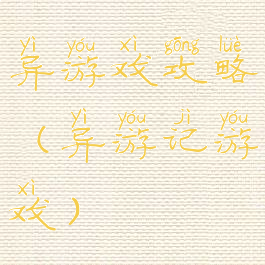 yì yóu xì gōng lüè
异游戏攻略
yì yóu jì yóu
（异游记游
xì
戏）